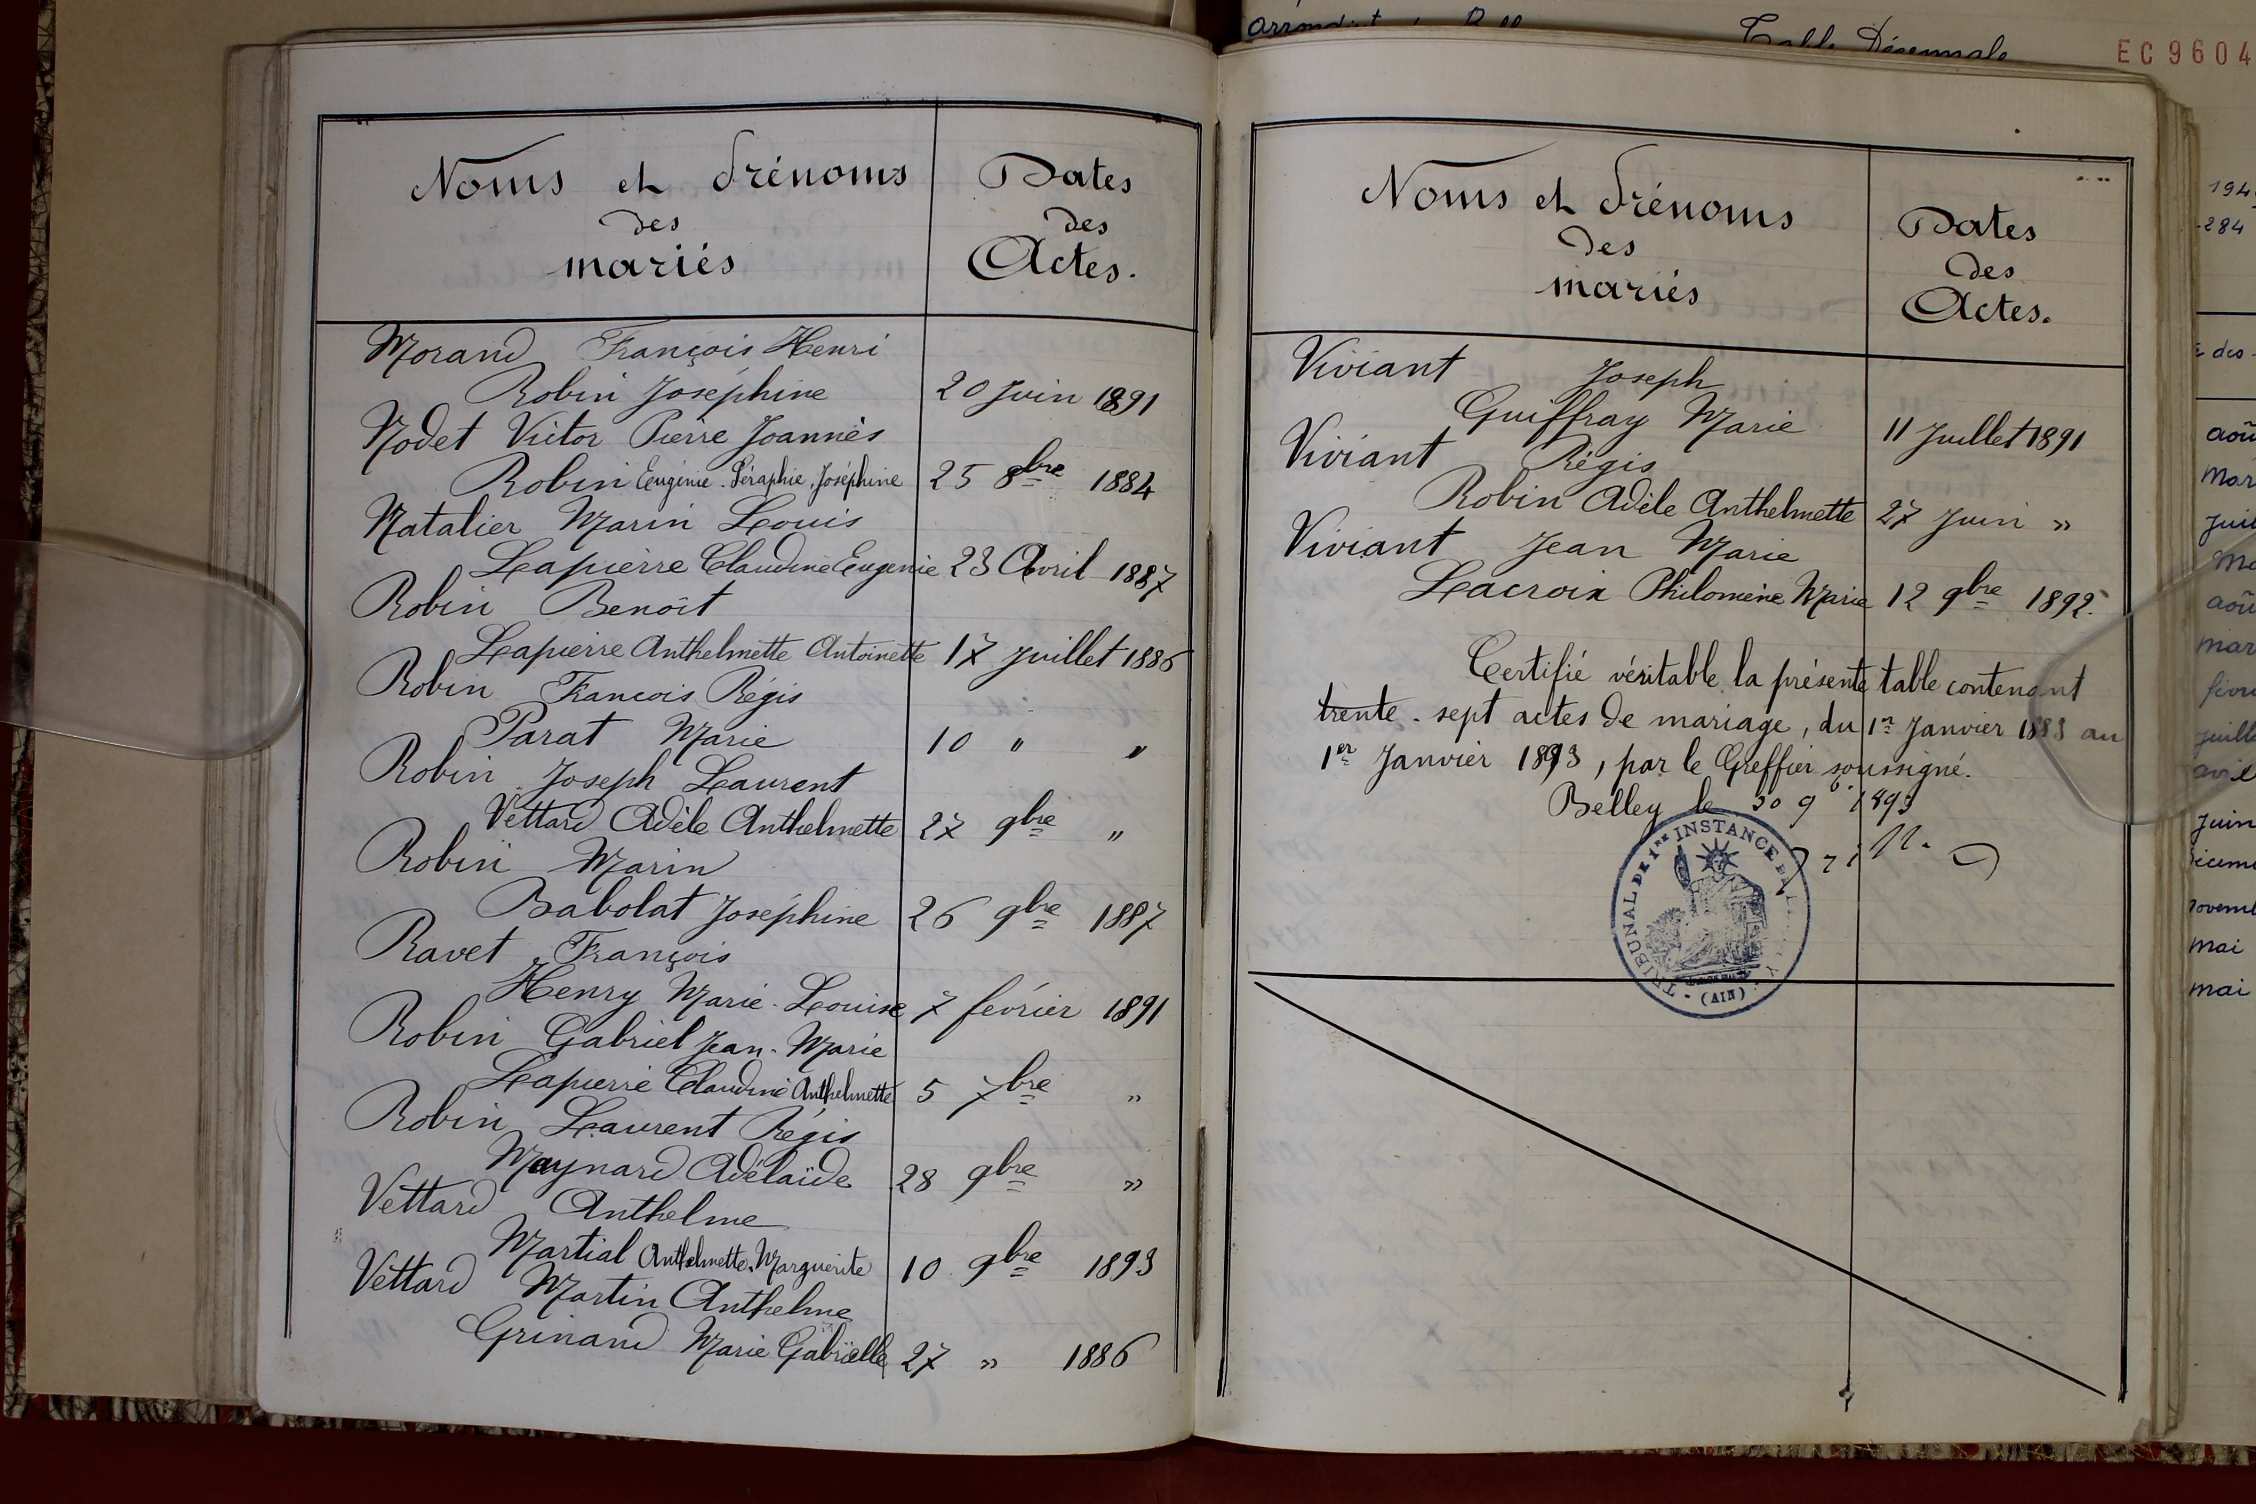 Noms et Prénoms
des
mariés
Dates
des
Actes.
Morand François Henri
Robin Joséphine 20 Juin 1891
Nodet Victor Pierre Joannès
Robin Eugénie Séraphie, Joséphine 25 8bre 1884
Natalier Marin Louis
Lapierre Claudine Eugenie 23 Avril 1887
Robin Benoît
Lapierre Anthelmette Antoinette 17 Juillet 1886
Robin Francois Régis
Parat Marie 10 " "
Robin Joseph Laurent
Vettard Adèle Anthelmette 27 9bre "
Robin Marin
Babolat Joséphine 26 9bre 1887
Ravet François
Henry Marie-Louise 7 février 1891
Robin Gabriel Jean-Marie
Lapierre Claudine Anthelmette 5 7bre "
Robin Laurent Régis
Maynard Adélaïde 28 9bre "
Vettard Anthelme
Martial Anthelmette Marguerite 10 9bre 1893
Vettard Martin Anthelme
Grinand Marie Gabrielle 27 " 1886
Noms et Prénoms
des
mariés
Dates
des
Actes.
Viviant Joseph
Guiffray Marie 11 Juillet 1891
Viviant Régis
Robin Adèle Anthelmette 27 Juin "
Viviant Jean Marie
Lacroix Philomène Marie 12 9bre 1892.
Certifié véritable la présente table contenant
trente-sept actes de mariage, du 1er Janvier 1883 au
1er Janvier 1893, par le Greffier soussigné.
Belley le 30 9b 1893
TRIBUNAL DE 1RE INSTANCE DE
(AIN)
Table Décennale
EC 9604
194
284
des
aoû
mar
juil
ma
aoû
mar
févr
juill
avril
juin
décem
novemb
mai
mai